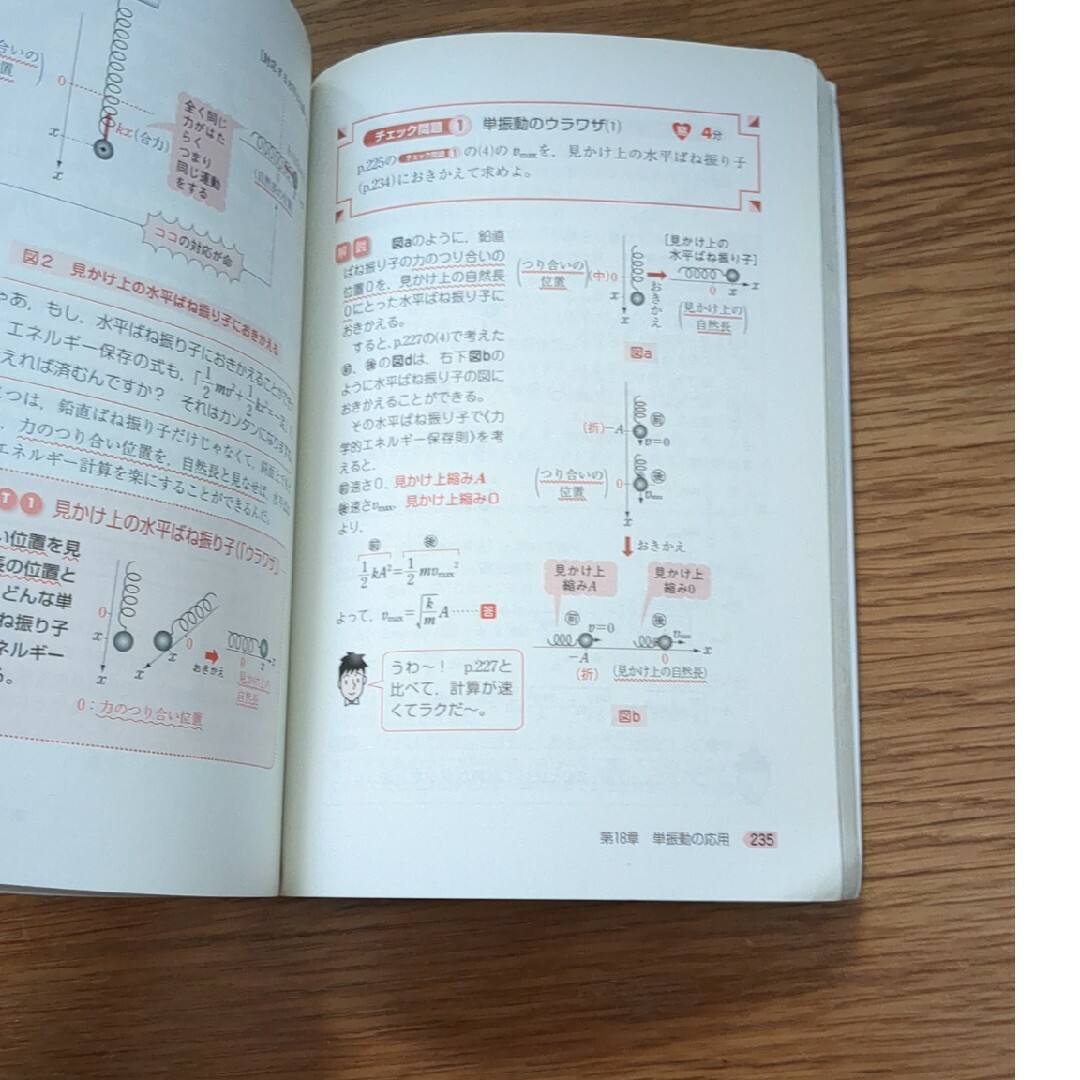 合いの
置
0
x
kx(合力)
x
全く同じ
力がはた
らく
つまり
同じ運動
をする
(自然長の位置)
ココの対応が命
図2 見かけ上の水平ばね振り子におきかえる
あ、もし、水平ばね振り子におきかえることが
エネルギー保存の式も、「1/2mv²+1/2kx²=一定」
えれば済むんですか? それはカンタンになりますね
つは、鉛直ばね振り子だけじゃなくて、斜面上でも
力のつり合い位置を、自然長と見なせば、
エネルギー計算を楽にすることができるんだ。
T 1 見かけ上の水平ばね振り子(「ウラワザ」
い位置を見
長の位置と
どんな単
ね振り子
ネルギー
る。
0
x
x
0
x
おきかえ
0
x
見かけ上の
自然長
0:力のつり合い位置
チェック問題 1 単振動のウラワザ(1) 4分
p.225の チェック問題 1 の(4)の vmaxを、見かけ上の水平ばね振り子
(p.234)におきかえて求めよ。
解説 図aのように、鉛直
ばね振り子の力のつり合いの
位置0を、見かけ上の自然長
0にとった水平ばね振り子に
おきかえる。
すると、p.227の(4)で考えた
前、後の図dは、右下図bの
ように水平ばね振り子の図に
おきかえることができる。
その水平ばね振り子で〈力
学的エネルギー保存則〉を考
えると、
前速さ0、見かけ上縮みA
後速さvmax、見かけ上縮み0
より、
前 後
1/2 kA² = 1/2 mvmax²
よって、vmax = √(k/m) A ……答
うわ〜! p.227と
比べて、計算が速
くてラクだ〜。
(つり合いの
位置)
(中)0
x
x
おきかえ
[見かけ上の
水平ばね振り子]
0 x x
(見かけ上の
自然長)
図a
(折)−A
前
v=0
(つり合いの
位置)
0
後
vmax
x
おきかえ
見かけ上
縮みA
見かけ上
縮み0
前 v=0
後 vmax
−A
0 x
(折) (見かけ上の自然長)
図b
第18章 単振動の応用 235